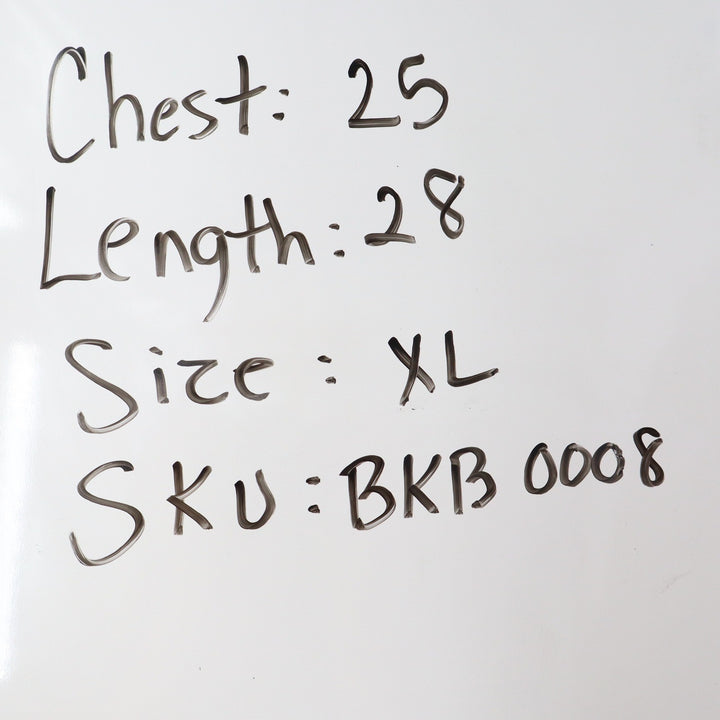 Chest: 25
Length: 28
Size: XL
SKU: BKB 0008